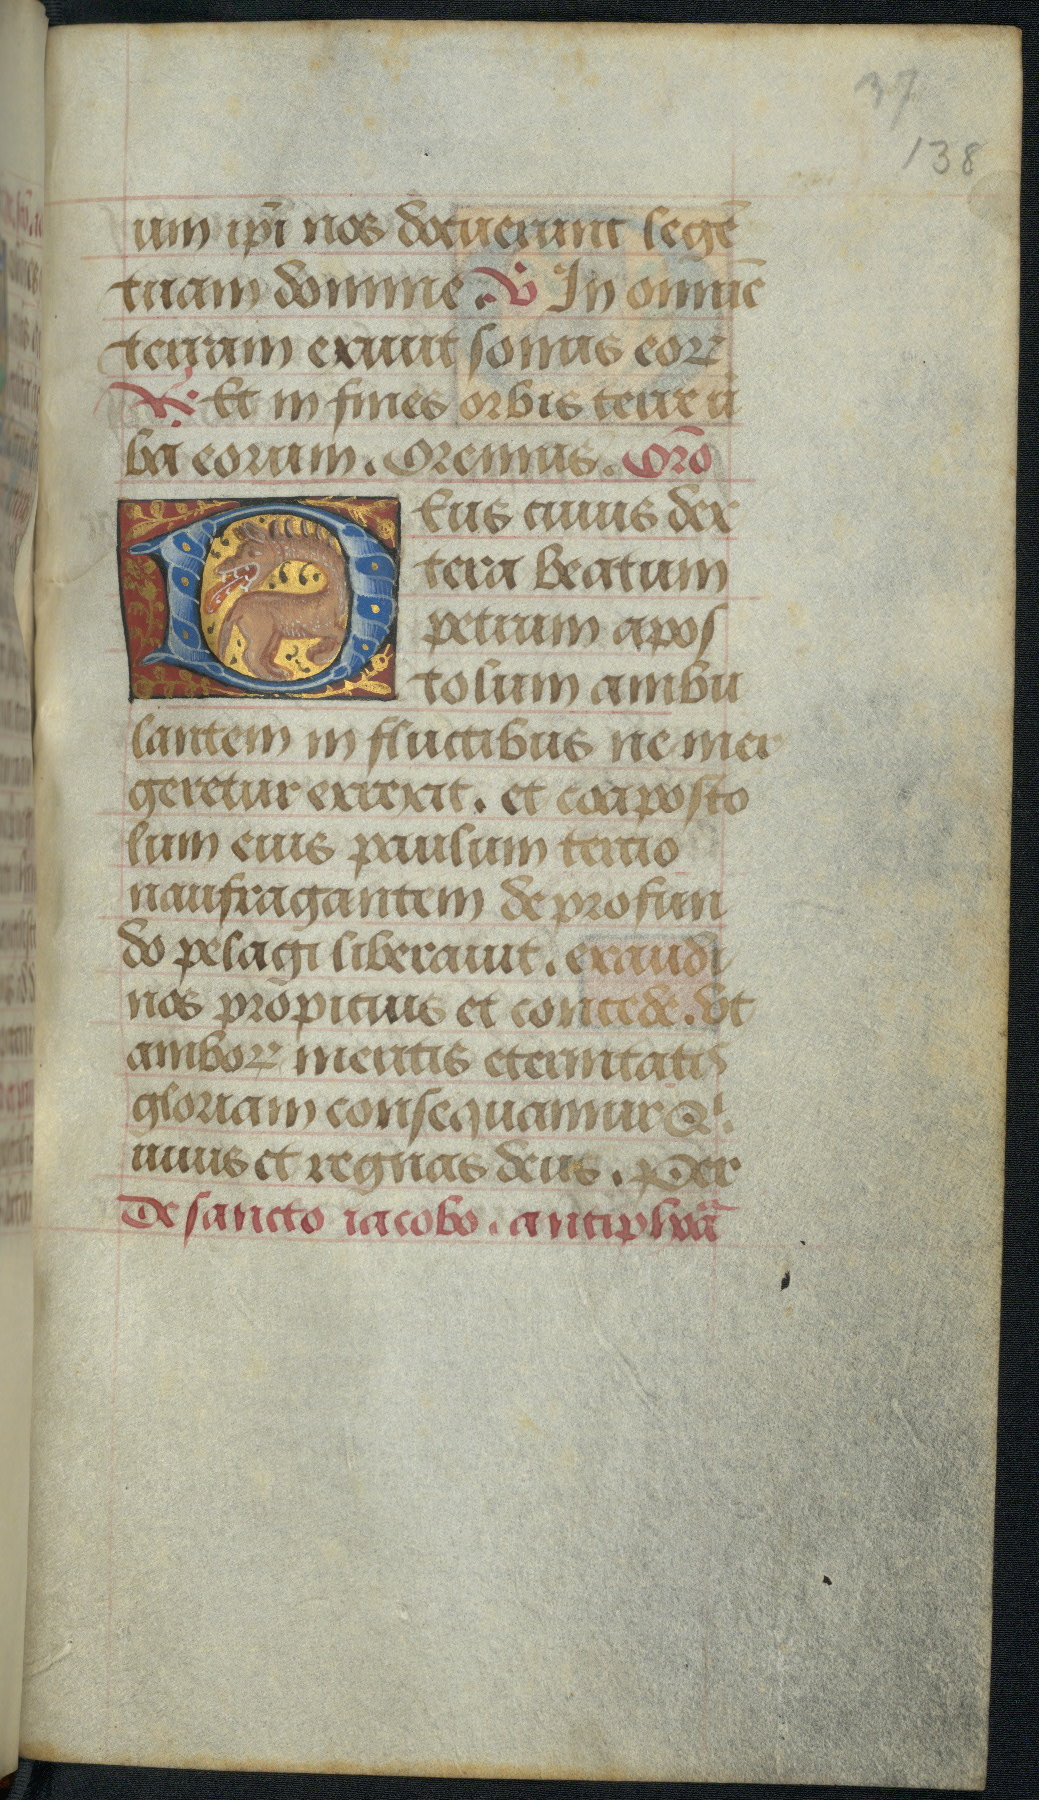 37
138
um ip̄i nos docuerunt legē
tuam domine. V In omnē
terram exiuit sonus eoꝝ
R. Et in fines orbis terre ū
ba eorum. Oremus. Orō
Deus cuius dex
tera beatum
petrum apos
tolum ambu
lantem in fluctibus ne mer
geretur erexit. et coaposto
lum eius paulum tercio
naufragantem de profun
do pelagi liberauit. exaudi
nos propicius et concede. vt
amboꝝ meritis eternitatis
gloriam consequamur Qⁱ.
uiuis et regnas deus. Per
De sancto iacobo. antiphoā